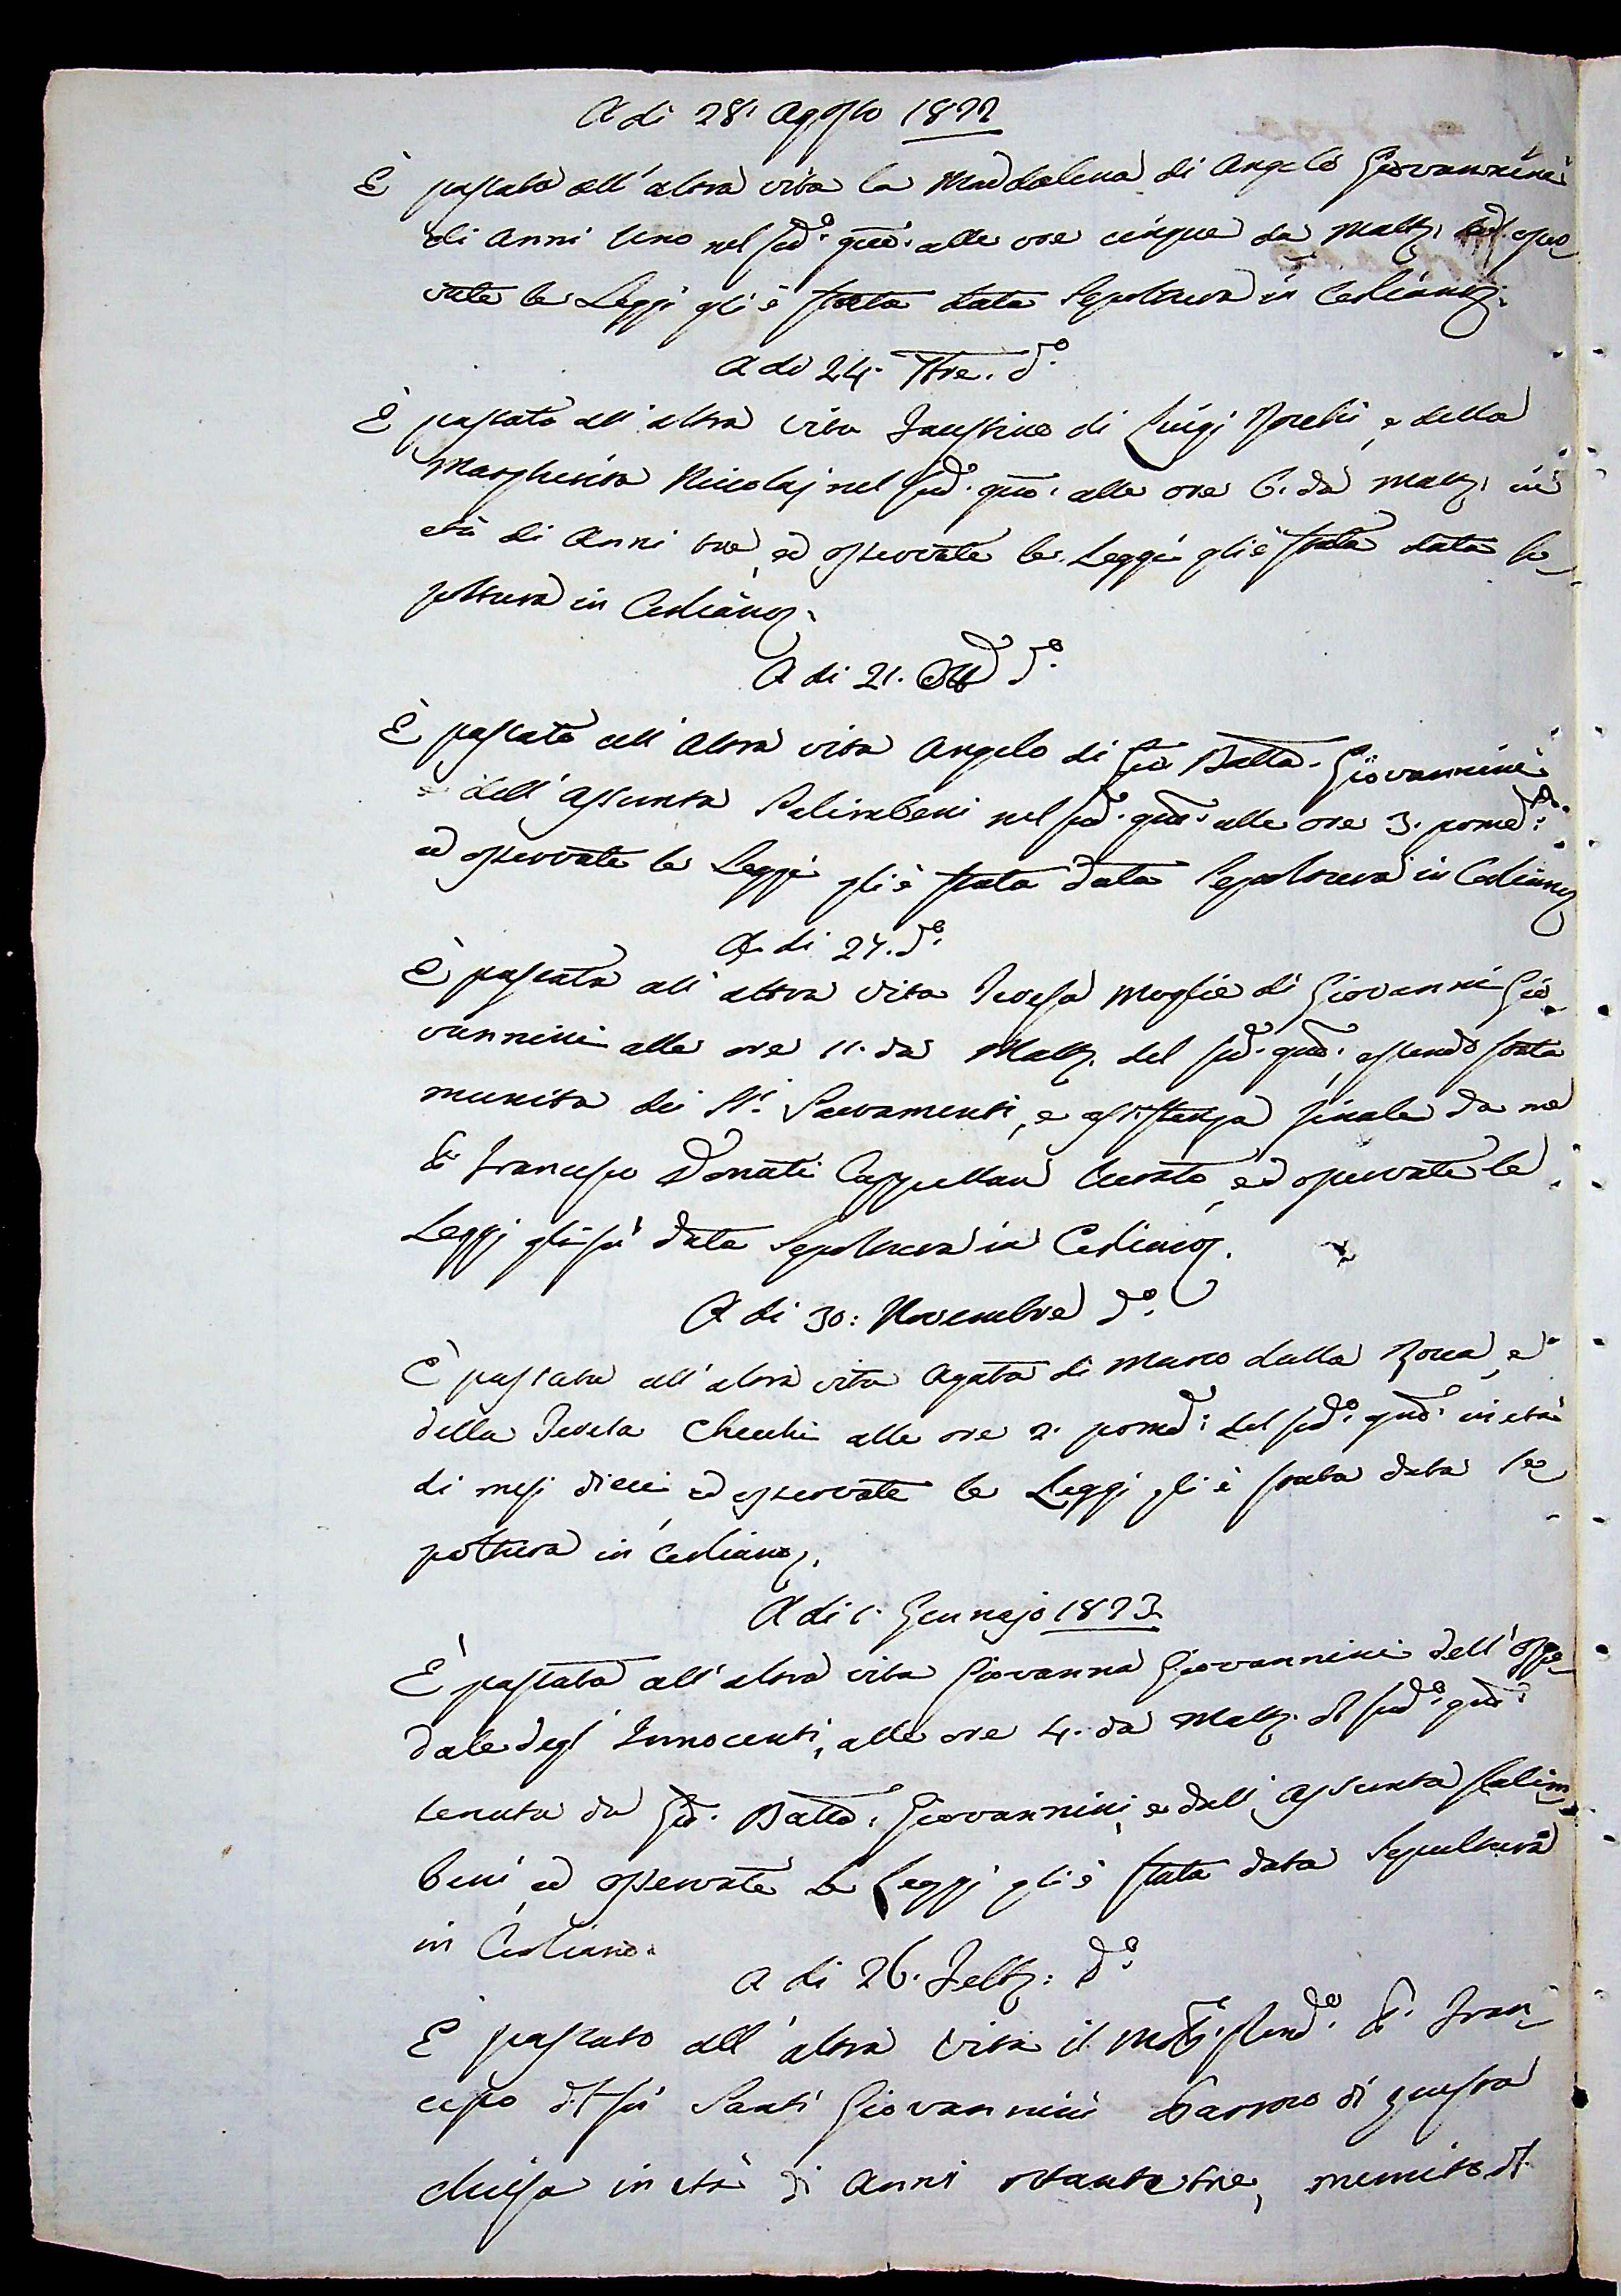 A di 28. Agosto 1822
È passata all'altra vita la Maddalena di Angelo Giovannini
di Anni Uno nel sud.º gnō. alle ore cinque da Matt.ª ed osser
vate le Leggi gli è stata data Sepoltura in Cestiano.
A di 24. 7bre. d.º
È passato all'altra vita Faustino di Luigi e della
Margherita Niccolaj nel sud.º gnō. alle ore 6. da Matt.ª in
età di Anni tre, ed osservate le Leggi gli è stata data Se
poltura in Cestiano.
A di 21. Ott.e d.º
È passato all'altra vita Angelo di Gio Batta. Giovannini
e dell'Assunta Salimbeni nel sud.º gnō. alle ore 3. pomed.e
ed osservate le Leggi gli è stata data Sepoltura in Cestiano
A di 24. d.º
È passata all'altra vita Teresa Moglie di Giovanni Gio
vannini alle ore 11. da Matt.ª del sud.º gnō. essendo stata
munita dei SS.i Sacramenti, e assistenza finale da me
D. Francesco Donati Cappellano Curato, ed osservate le
Leggi gli fù data Sepoltura in Cestiano.
A di 30: Novembre d.º
È passata all'altra vita Agata di Marco della Rocca, e
della Teresa Checchi alle ore 2. pomed.e del sud.º gnō. in età
di mesi dieci, ed osservate le Leggi gli è stata data Se
poltura in Cestiano.
A di 1. Gennajo 1823
È passata all'altra vita Giovanna Giovannini dell'Ospe
dale degl'Innocenti, alle ore 4. da Matt.ª d.l sud.º gnō.
tenuta da Gio. Batta. Giovannini, e dall'Assunta Salim
beni, ed osservate le Leggi gli è stata data Sepultura
in Cestiano.
A di 26. Febb.º: d.º
È passato all'altra vita il Mol.to Rend.º D. Fran
cesco d.l fù Santi Giovannini Parroco di questa
chiesa in età di Anni ottantatre, munito d.